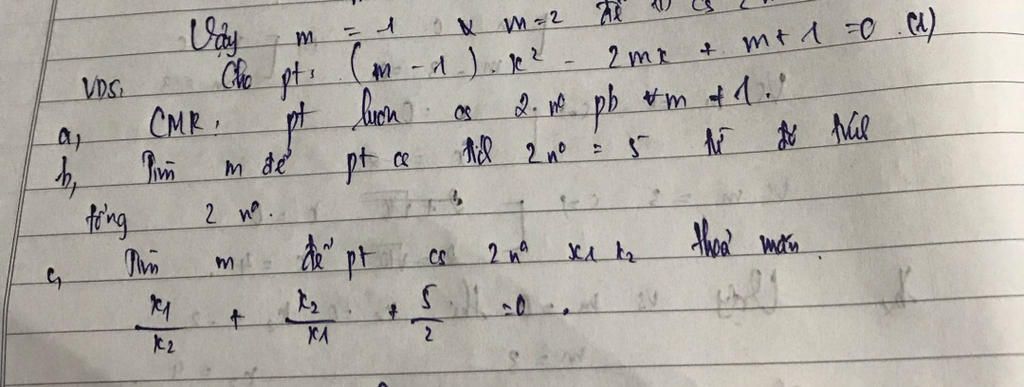 Vậy m = -1 & m = 2 để (1) có 2
VD5: Cho pt: (m - 1).x² - 2mx + m + 1 = 0 (1)
a, CMR: pt luôn có 2 n⁰ pb ∀m ≠ 1.
b, Tìm m để pt có tích 2 n⁰ = 5 từ đó tính
tổng 2 n⁰.
c, Tìm m để pt có 2 n⁰ x1 x2 thoả mãn.
x1/x2 + x2/x1 + 5/2 = 0.